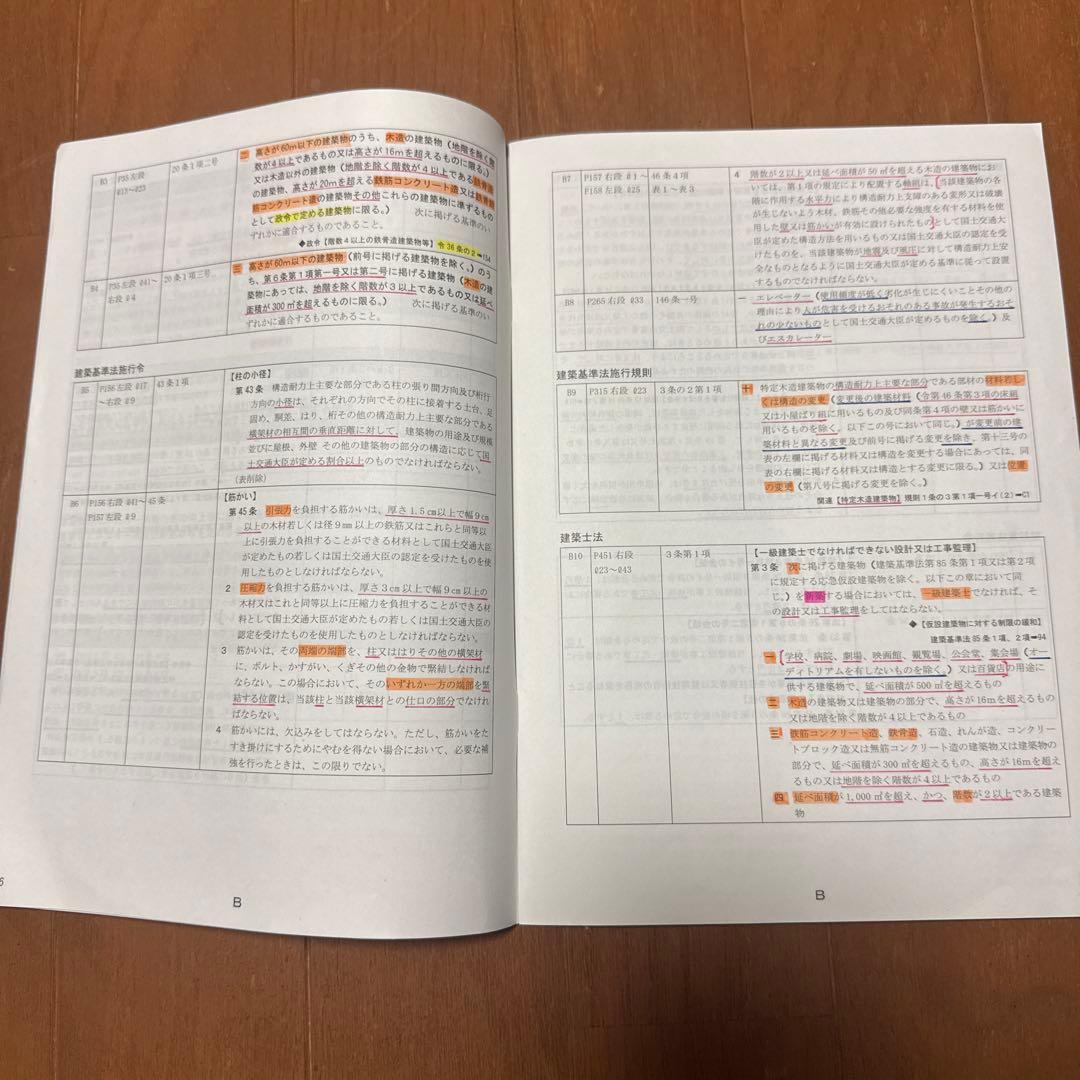 B3
P55左段
ℓ13～ℓ23
20条1項二号
二 高さが60m以下の建築物のうち、木造の建築物（地階を除く階
数が4以上であるもの又は高さが16mを超えるものに限る。）
又は木造以外の建築物（地階を除く階数が4以上である鉄骨造
の建築物、高さが20mを超える鉄筋コンクリート造又は鉄骨鉄
筋コンクリート造の建築物その他これらの建築物に準ずるもの
として政令で定める建築物に限る。） 次に掲げる基準のい
ずれかに適合するものであること。
◆政令【階数4以上の鉄骨造建築物等】令36条の2➡154
B4
P55左段 ℓ41～
右段 ℓ4
20条1項三号
三 高さが60m以下の建築物（前号に掲げる建築物を除く。）のう
ち、第6条第1項第一号又は第二号に掲げる建築物（木造の建
築物にあっては、地階を除く階数が3以上であるもの又は延べ
面積が300㎡を超えるものに限る。） 次に掲げる基準のい
ずれかに適合するものであること。
建築基準法施行令
B5
P156左段 ℓ17
～右段 ℓ9
43条1項
【柱の小径】
第43条 構造耐力上主要な部分である柱の張り間方向及び桁行
方向の小径は、それぞれの方向でその柱に接着する土台、足
固め、胴差、はり、桁その他の構造耐力上主要な部分である
横架材の相互間の垂直距離に対して、建築物の用途及び規模
並びに屋根、外壁その他の建築物の部分の構造に応じて国
土交通大臣が定める割合以上のものでなければならない。
（表削除）
B6
P156右段 ℓ41～
P157左段 ℓ9
45条
【筋かい】
第45条 引張力を負担する筋かいは、厚さ1.5㎝以上で幅9㎝
以上の木材若しくは径9㎜以上の鉄筋又はこれらと同等以
上に引張力を負担することができる材料として国土交通大臣
が定めたもの若しくは国土交通大臣の認定を受けたものを使
用したものとしなければならない。
2 圧縮力を負担する筋かいは、厚さ3㎝以上で幅9㎝以上の
木材又はこれと同等以上に圧縮力を負担することができる材
料として国土交通大臣が定めたもの若しくは国土交通大臣の
認定を受けたものを使用したものとしなければならない。
3 筋かいは、その両端の端部を、柱又ははりその他の横架材
に、ボルト、かすがい、くぎその他の金物で緊結しなければ
ならない。この場合において、そのいずれか一方の端部を緊
結する位置は、当該柱と当該横架材との仕口の部分でなけれ
ばならない。
4 筋かいには、欠込みをしてはならない。ただし、筋かいをた
すき掛けにするためにやむを得ない場合において、必要な補
強を行ったときは、この限りでない。
6
B
B7
P157右段 ℓ1～
P158左段 ℓ25
46条4項
表1～表3
4 階数が2以上又は延べ面積が50㎡を超える木造の建築物にお
いては、第1項の規定により配置する軸組は、当該建築物の各
階に作用する水平力により構造耐力上支障のある変形又は破壊
が生じないよう木材、鉄筋その他必要な強度を有する材料を使
用した壁又は筋かいが有効に設けられたものとして国土交通大
臣が定めた構造方法を用いるもの又は国土交通大臣の認定を受
けたものを、当該建築物が地震及び風圧に対して構造耐力上安
全なものとなるように国土交通大臣が定める基準に従って設置
するものでなければならない。
B8
P265右段 ℓ33
146条一号
一 エレベーター（使用頻度が低く劣化が生じにくいことその他の
理由により人が危害を受けるおそれのある事故が発生するおそ
れの少ないものとして国土交通大臣が定めるものを除く。）及
びエスカレーター
建築基準法施行規則
B9
P315右段 ℓ23
3条の2第1項
十 特定木造建築物の構造耐力上主要な部分である部材の材料若し
くは構造の変更（変更後の建築材料（令第46条第3項の床組
又は小屋ばり組に用いるもの及び同条第4項の壁又は筋かいに
用いるものを除く。以下この号において同じ。）が変更前の建
築材料と異なる変更及び前号に掲げる変更を除き、第十三号の
表の左欄に掲げる材料又は構造を変更する場合にあっては、同
表の右欄に掲げる材料又は構造とする変更に限る。）又は位置
の変更（第八号に掲げる変更を除く。）
関連【特定木造建築物】規則1条の3第1項一号イ(2)➡C1
建築士法
B10
P451右段
ℓ23～ℓ43
3条第1項
【一級建築士でなければできない設計又は工事監理】
第3条 次に掲げる建築物（建築基準法第85条第1項又は第2項
に規定する応急仮設建築物を除く。以下この章において同
じ。）を新築する場合においては、一級建築士でなければ、そ
の設計又は工事監理をしてはならない。
◆【仮設建築物に対する制限の緩和】
建築基準法85条1項、2項➡94
一 学校、病院、劇場、映画館、観覧場、公会堂、集会場（オー
ディトリアムを有しないものを除く。）又は百貨店の用途に
供する建築物で、延べ面積が500㎡を超えるもの
二 木造の建築物又は建築物の部分で、高さが16mを超えるもの
又は地階を除く階数が4以上であるもの
三 鉄筋コンクリート造、鉄骨造、石造、れんが造、コンクリ
ートブロック造又は無筋コンクリート造の建築物又は建築物の
部分で、延べ面積が300㎡を超えるもの、高さが16mを超え
るもの又は地階を除く階数が4以上であるもの
四 延べ面積が1,000㎡を超え、かつ、階数が2以上である建築
物
B